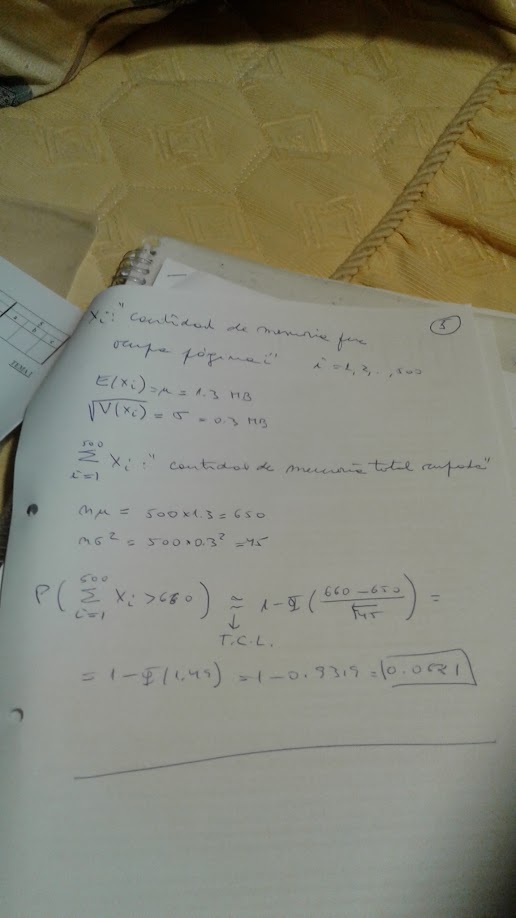 5
Xi: "cantidad de memoria que
ocupa página i" i=1,2,..,500
E(Xi)=μ=1.3 MB
√V(Xi) = σ = 0.3 MB
500
∑ Xi: "cantidad de memoria total ocupada"
i=1
nμ = 500×1.3=650
nσ² = 500×0.3²=45
P(∑_{i=1}^{500} Xi > 660) ≈ 1-Φ((660-650)/√45) =
↓
T.C.L.
= 1-Φ(1.49) = 1-0.9319=0.0681
TEMA I